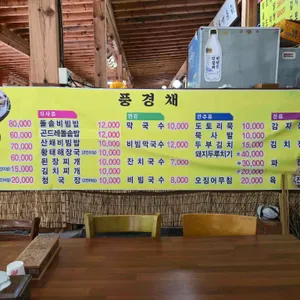 풍경채
80,000
70,000
60,000
60,000
15,000
20,000
식사류
돌솥비빔밥 12,000
곤드레돌솥밥 12,000
산채비빔밥 10,000
황태해장국 10,000
된장찌개 10,000
김치찌개 10,000
청국장 10,000
막국수 10,000
비빔막국수 12,000
잔치국수 7,000
비빔국수 8,000
안주류
도토리묵 10,000
묵사발 10,000
두부김치 15,000
돼지두루치기 40,000
20,000
오징어무침 20,000
감자
김치
파
육